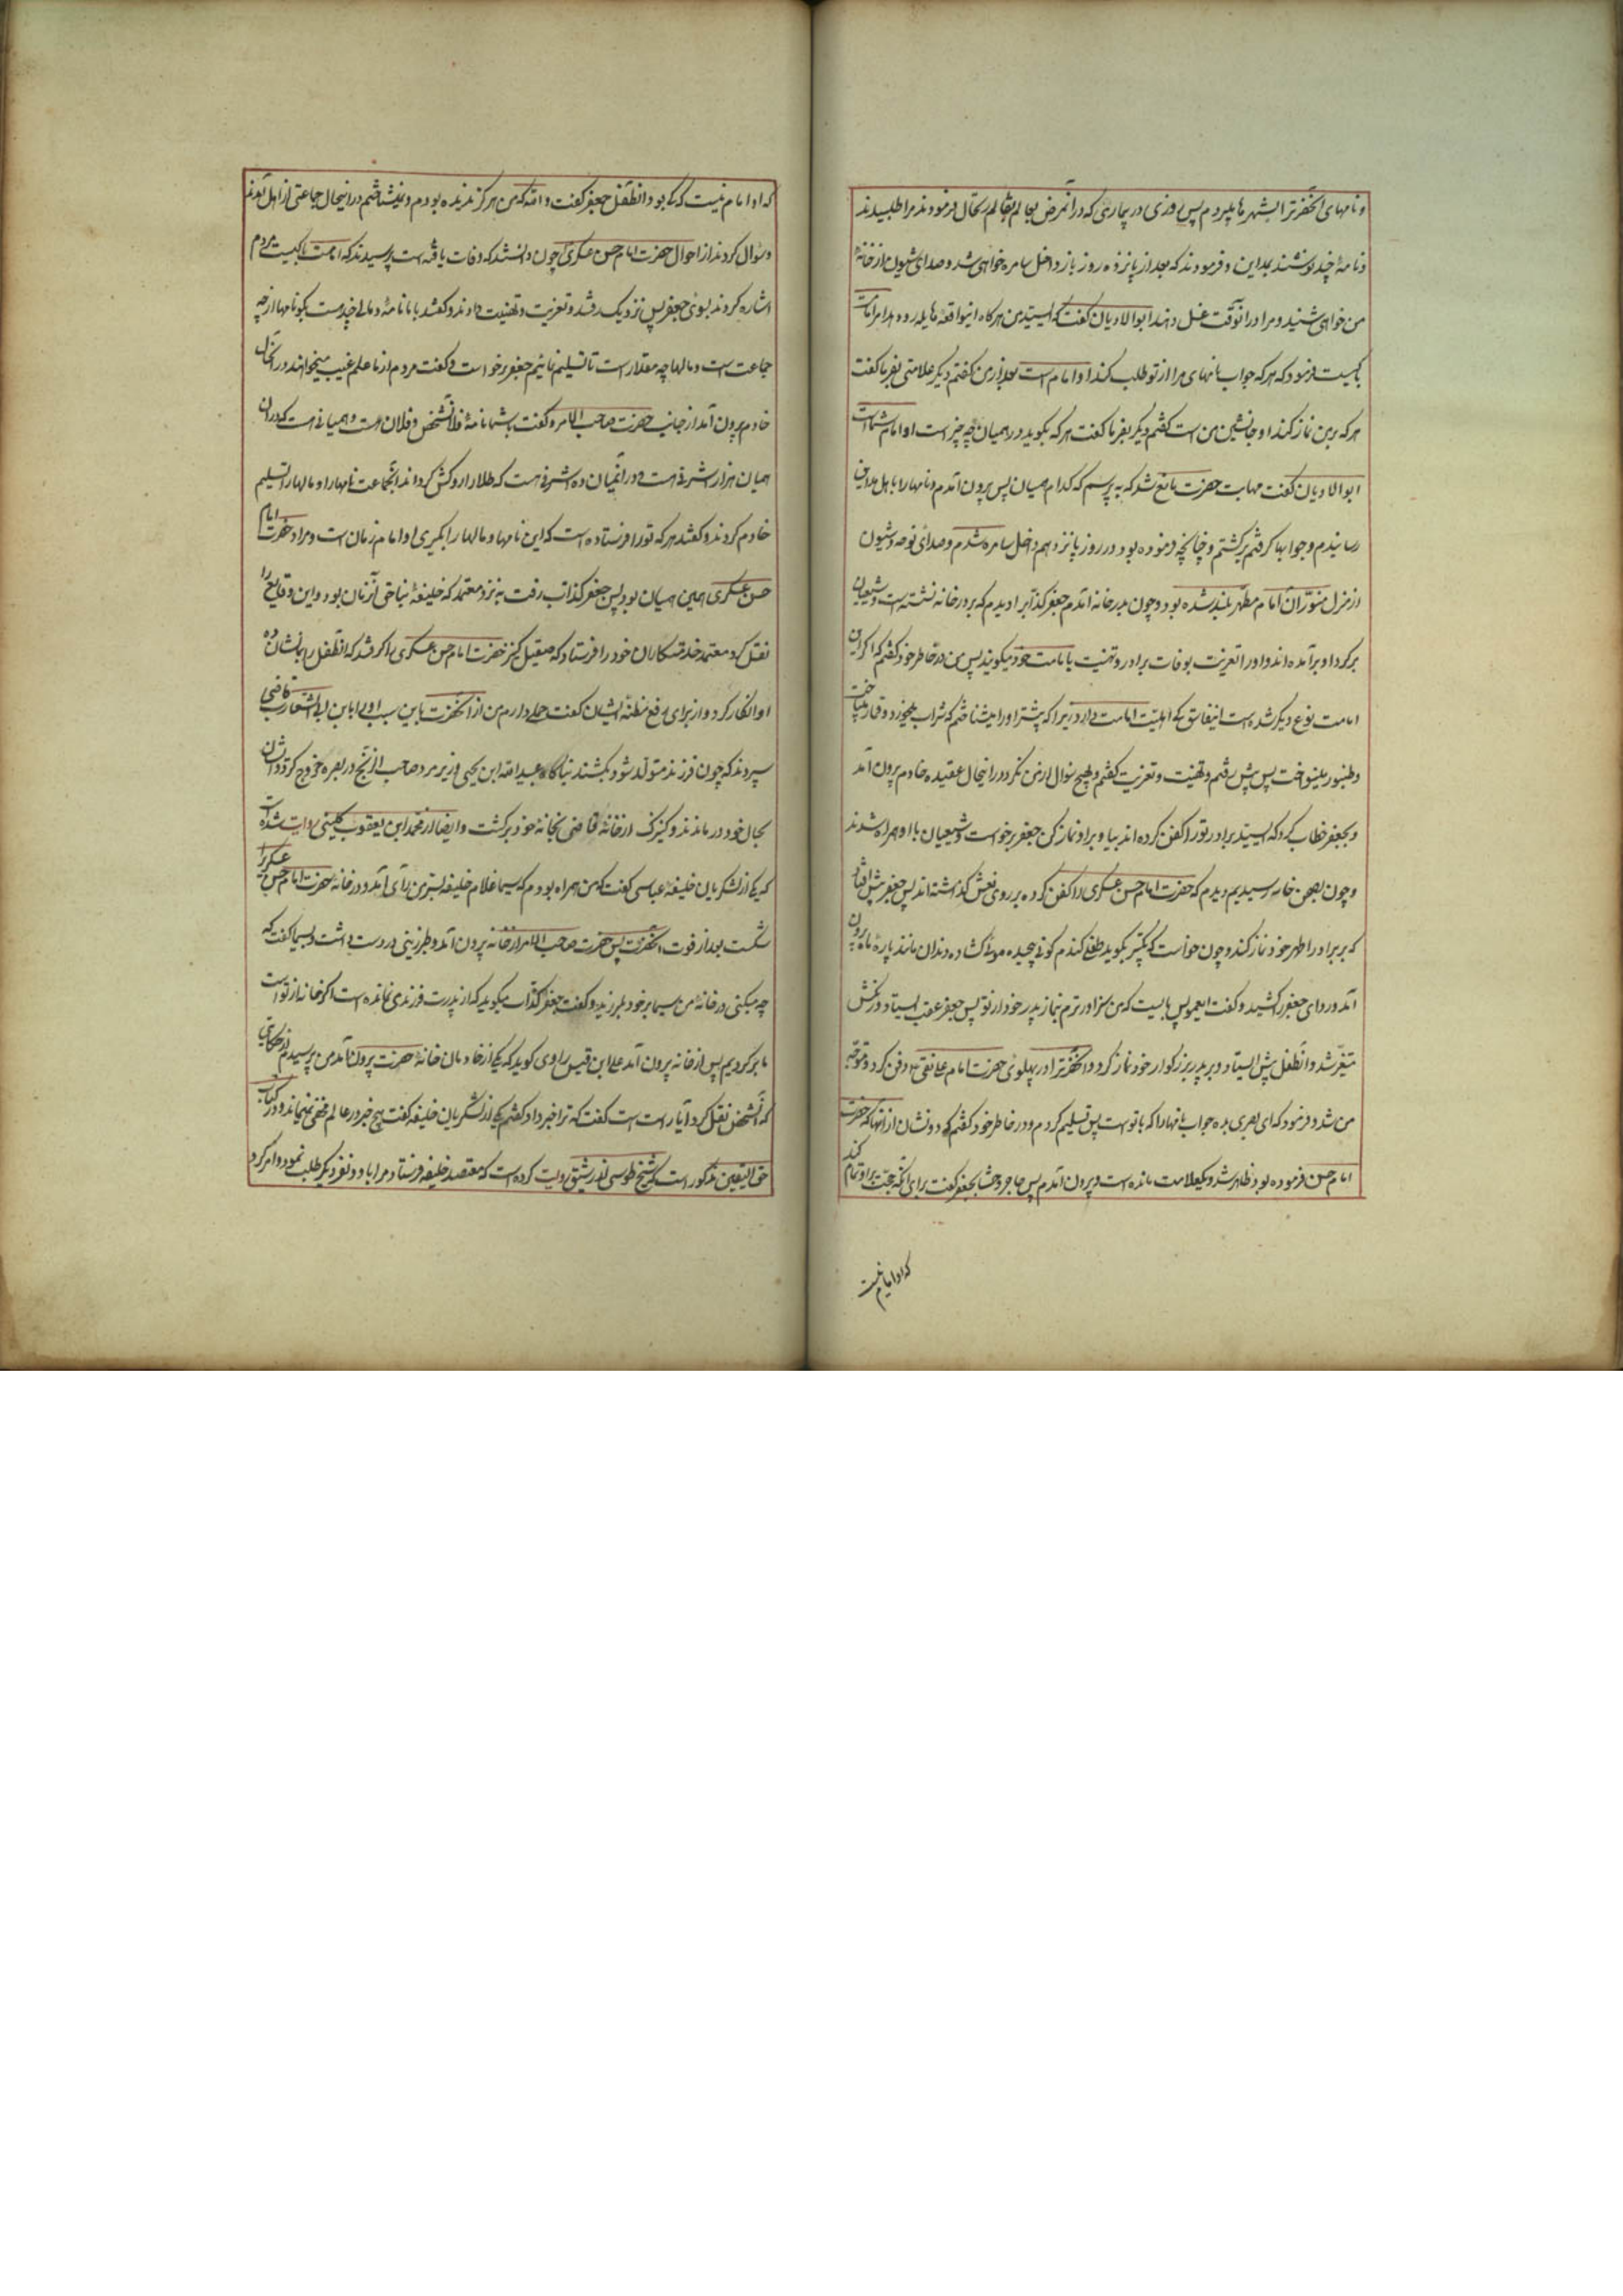 و نامهای آنحضرترا بشهرها میبردم پس روزی در بیماریی که در آنمرض بعالم بقا ارتحال فرمودند مرا طلبیدند
و نامهٔ چند نوشتند بمداین و فرمودند که بعد از پانزده روز باز داخل سامره خواهی شد و صدای شیون از خانهٔ
من خواهی شنید و مرا در آنوقت غسل دهند ابوالادیان گفت که ای سید من هر کاه این واقعهٔ هایله رو دهد امر امامت
با کیست فرمود که هر که جواب نامهای مرا از تو طلب کند او امام است بعد از من گفتم دیگر علامتی بفرما گفت
هر که بر من نماز کند او جانشین من است گفتم دیگر بفرما گفت هر که بگوید در همیان چه چیز است او امام شماست
ابوالادیان گفت مهابت حضرت مانع شد که بپرسم که کدام همیان پس بیرون آمدم و نامها را باهل مداین
رسانیدم و جوابها گرفتم برگشتم و چنانچه فرموده بود در روز پانزدهم داخل سامره شدم و صدای نوحه و شیون
از منزل منوّر آن امام مطهر بلند شده بود و چون بدر خانه آمدم جعفر کذّاب را دیدم که بر در خانه نشسته است و شیعیان
بر گرد او برآمده اند و او را تعزیت بوفات برادر و تهنیت بامامت خود میگویند پس من در خاطر خود گفتم که اگر این
امامت نوع دیگر شده است این فاسق کی اهلیت امامت دارد زیرا که پیشتر او را میشناختم که شراب میخورد و قمار میباخت
و طنبور مینواخت پس پیش رفتم و تهنیت و تعزیت گفتم و هیچ سؤال از من نکرد در اینحال عقید خادم بیرون آمد
و بجعفر خطاب کرد که ای سید برادر تو را کفن کرده اند بیا و بر او نماز کن جعفر برخواست و شیعیان با او همراه شدند
و چون بصحن خانه رسیدیم دیدم که حضرت امام حسن عسکری را کفن کرده بر روی نعش گذاشته اند پس جعفر پیش افتاد
که بر برادر اطهر خود نماز کند و چون خواست که تکبیر بگوید طفلی گندم گونی پیچیده موئی گشاده دندان مانند پارهٔ ماه بیرون
آمد و ردای جعفر را کشید و گفت ای عمو پس بایست که من سزاوارترم بنماز پدر خود از تو پس جعفر عقب ایستاد و رنگش
متغیّر شد و آن طفل پیش ایستاد و بر پدر بزرگوار خود نماز کرد و آنحضرترا در پهلوی حضرت امام علی نقی دفن کرد و متوجّه
من شد و فرمود که ای بصری بده جواب نامها را که با تو است پس تسلیم کردم و در خاطر خود گفتم که دو نشان از آنها که حضرت
امام حسن فرموده بود ظاهر شد و یک علامت مانده است و بیرون آمدم پس حاجز وشا بجعفر گفت برای آنکه حجّت بر او تمام کند
که او امام نیست
که او امام نیست که کی بود آن طفل جعفر گفت و الله که من هرگز ندیده بودم و نمیشناختم در اینحال جماعتی از اهل قم آمدند
و سؤال کردند از احوال حضرت امام حسن عسکری چون دانستند که وفات یافته است پرسیدند که امامت با کیست مردم
اشاره کردند بسوی جعفر پس نزدیک رفتند و تعزیت و تهنیت دادند و گفتند با ما نامه و مالی چند است بگو نامها از چه
جماعت است و مالها چه مقدار است تا تسلیم نمائیم جعفر برخواست و گفت مردم از ما علم غیب میخواهند در آنحال
خادم بیرون آمد از جانب حضرت صاحب الامر و گفت با شما نامهٔ فلان شخص و فلان است و همیانی هست که در آن
همیان هزار اشرفی هست و در آن میان ده اشرفی هست که طلا را روکش کرده اند آنجماعت نامها را و مالها را تسلیم
خادم کردند و گفتند هر که تو را فرستاده است که این نامها و مالها را بگیری او امام زمان است و مراد حضرت امام
حسن عسکری همین همیان بود پس جعفر کذاب رفت به نزد معتمد که خلیفهٔ بناحق آن زمان بود و این وقایع را
نقل کرد معتمد خدمتکاران خود را فرستاد که صیقل کنیز حضرت امام حسن عسکری را گرفتند که آن طفل را نشان ده
او انکار کرد و از برای رفع مظنهٔ ایشان گفت حملی دارم من از آنحضرت باین سبب او را بابن ابی الشوارب قاضی
سپردند که چون فرزند متولد شود بکشند ناگاه عبید الله ابن یحیی وزیر مرد و صاحب الزنج در بصره خروج کرد و ایشان
بحال خود درماندند و کنیزک از خانهٔ قاضی بخانهٔ خود برگشت و ایضا از محمد ابن یعقوب کلینی روایت شده است
که یکی از لشکریان خلیفهٔ عباسی گفت که من همراه بودم که سیما غلام خلیفه بسرّ من رآی آمد و در خانهٔ حضرت امام حسن عسکری را
شکست بعد از فوت آنحضرت پس حضرت صاحب الامر از خانه بیرون آمد و طبرزینی در دست داشت و بسیما گفت که
چه میکنی در خانهٔ من سیما بر خود بلرزید و گفت جعفر کذّاب میگوید که از پدرت فرزندی نمانده است اگر خانه از تو است
ما برگردیم پس از خانه بیرون آمد علی ابن قیس راوی گوید که یکی از خادمان خانهٔ حضرت بیرون آمد من پرسیدم از حکایتی
که آن شخص نقل کرد آیا راست است گفت که ترا خبر داد گفتم یکی از لشکریان خلیفه گفت هیچ خبر در عالم مخفی نمیماند و در کتاب
حق الیقین مذکور است که شیخ طوسی از رشیق روایت کرده است که معتضد خلیفه فرستاد و مرا با دو نفر دیگر طلب نمود و امر کرد